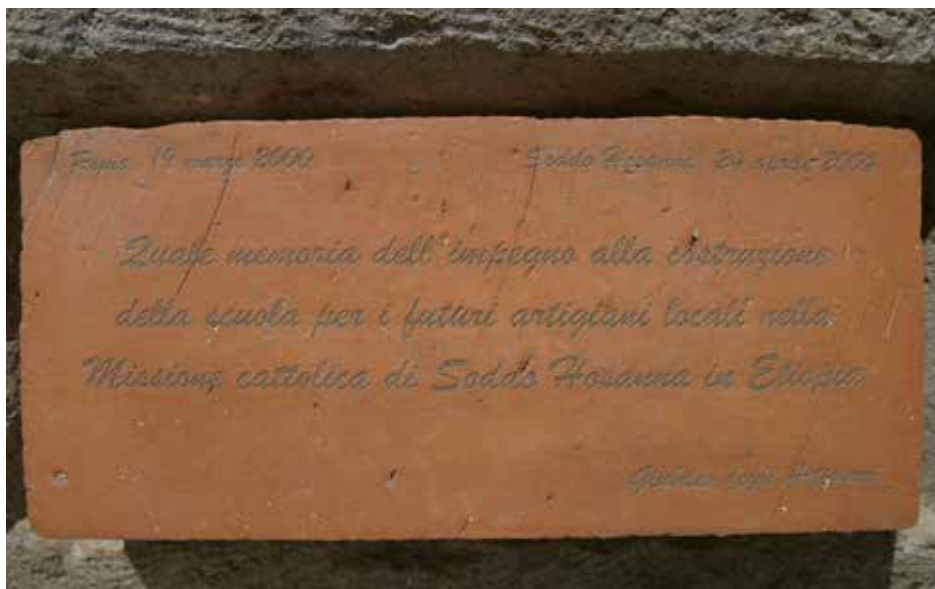 Roma 19 marzo 2000 Soddo Hosanna, 24 aprile
Quale memoria dell'impegno alla costruzione
della scuola per i futuri artigiani locali nella
Missione cattolica di Soddo Hosanna in Etiopia